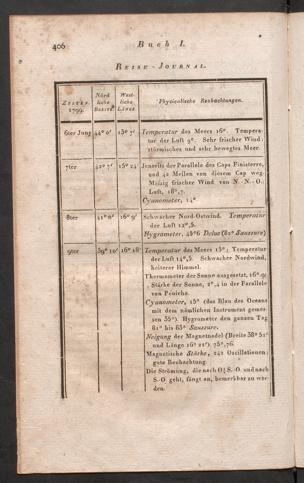 406 Buch I.
REISE-JOURNAL.
ZEITEN. 1799.
Nördliche BREITE
Westliche LÄNGE
Physicalische Beobachtungen.
6ter Juny 44° 0' 13° 7'
Temperatur des Meers 16°. Tempera-
tur der Luft 9°. Sehr frischer Wind;
stürmisches und sehr bewegtes Meer.
7ter 42° 7' 15° 24'
Jenseits der Parallele des Caps Finisterre,
und 42 Meilen von diesem Cap weg.
Mäßig frischer Wind von N.-N.-O.;
Luft, 18°,7.
Cyanometer, 14°
8ter 41° 0' 16° 9'
Schwacher Nord-Ostwind. Temperatur
der Luft 12°,5.
Hygrometer, 45°6 Deluc (82° Saussure)
9ter 39° 10' 16° 18'
Temperatur des Meers 15°; Temperatur
der Luft 14°,5. Schwacher Nordwind,
heiterer Himmel.
Thermometer der Sonne ausgesetzt, 16°,9;
Stärke der Sonne, 2°,4 in der Parallele
von Peniche.
Cyanometer, 15° (das Blau des Oceans
mit dem nämlichen Instrument gemes-
sen 35°). Hygrometer den ganzen Tag
82° bis 85° Saussure.
Neigung der Magnetnadel (Breite 38° 52'
und Länge 16° 22') 75°,76.
Magnetische Stärke, 242 Oscillationen:
gute Beobachtung.
Die Strömung, die nach S.-O. und nach
S.-O. geht, fängt an, bemerkbar zu wer-
den.